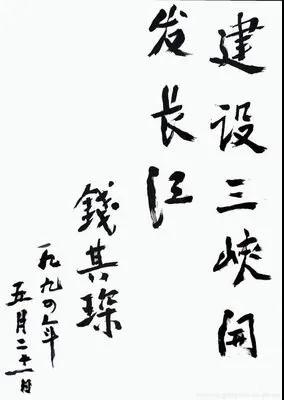 建设三峡开
发长江
錢其琛
一九九四年
五月二十一日